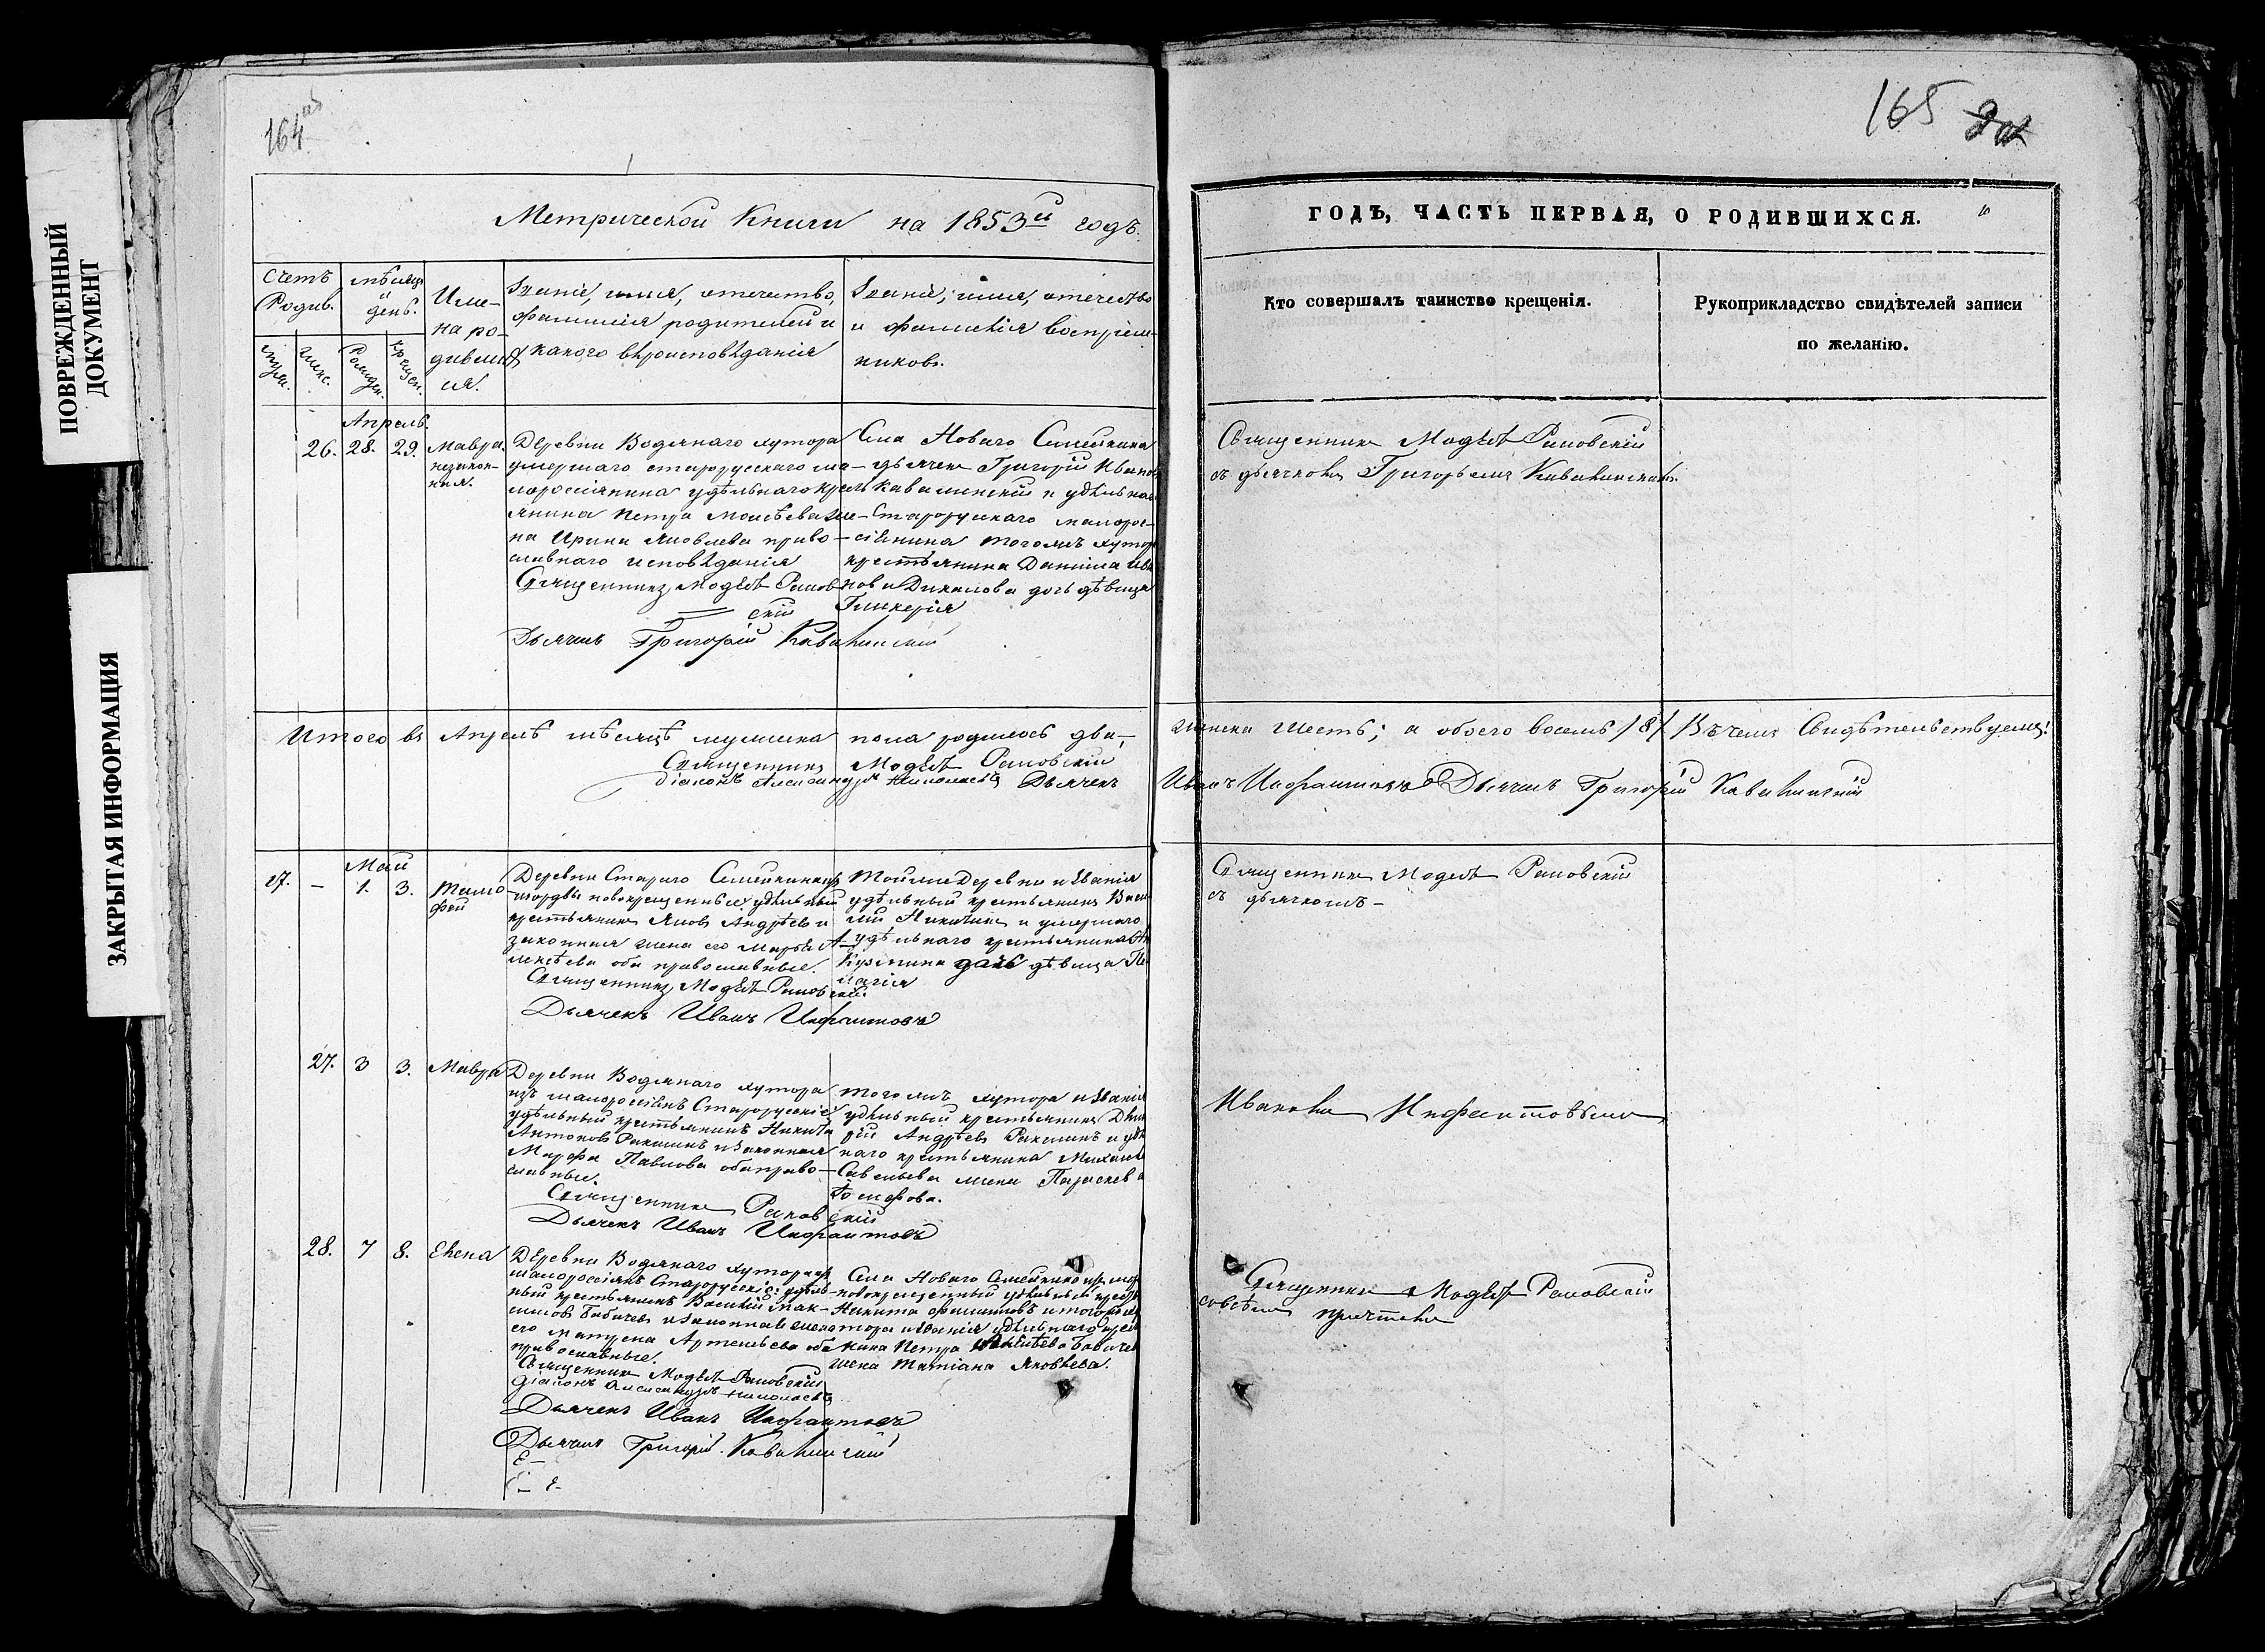 ПОВРЕЖДЕННЫЙ
ДОКУМЕНТ
ЗАКРЫТАЯ ИНФОРМАЦИЯ
164 об
Метрической Книги на 1853й годъ.
Счетъ
Родив.
мѣсяцъ
и
день.
Име-
на ро-
дивших
ся.
Званіе, имя, отечество,
фамилія родителей и
какого вѣроисповѣданія
Званіе, имя, отечество
и фамилія воспріем-
никовъ.
Рожден.
Крещен.
Апрель.
26. 28. 29. Мавра
незакон-
ная.
Деревни Водянаго хутора
умершаго старорусскаго ма-
лороссіянина удѣльнаго крестъ
янина Петра Моисѣева же-
на Ирина Яковлева право-
славнаго исповѣданія
Священникъ Модестъ Раков-
скій
Дьячекъ Григорій Кавалинскій
Села Новаго Семейкина
дьячекъ Григорій Иванов
Кавалинскій и удѣльнаго
Старорускаго малорос-
сіянина тогожъ хутора
крестьянина Даніила Ива
нова Дикалова дочь дѣвица
Гликерія
Итого въ Апрелѣ мѣсяцѣ мужеска пола родилось два,
Священникъ Модестъ Раковскій
діаконъ Александръ Николаевъ Дьячекъ
Май
27. – 1. 3. Тимо
фей
Деревни Стараго Семейкина изъ
мордвы новокрещенныхъ удѣльный
крестьянинъ Яковъ Андрѣевъ и
законная жена его Марья А-
лексѣева оба православные.
Священникъ Модестъ Раковскій
Дьячекъ Иванъ Инфантовъ
Тойже Деревни и званія
удѣльный крестьянинъ Васи
лій Никитинъ и умершаго
удѣльнаго крестьянина
дочь дѣвица Пе
лагія
27. 3 3. Мавра
Деревни Водянаго хутора
изъ малороссіянъ Старорусскіе
удѣльный крестьянинъ Никита
Антоновъ Ракшинъ и законная
Марфа Павлова оба право-
славные.
Священникъ Раковскій
Дьячекъ Иванъ Инфантовъ
тогожъ хутора и званія
удѣльный крестьянинъ Дмит
рій Андрѣевъ Ракшинъ и удѣль
наго крестьянина Михаила
Савельева жена Параскева
Іосифова.
28. 7 8. Елена
Деревни Водянаго хутора изъ
малороссіянъ Старорусскіе удѣль-
ный крестьянинъ Василій Мак-
симовъ Бабичевъ и законная жена
его Матрена Артемьева оба
православные.
Священникъ Модестъ Раковскій
діаконъ Александръ Николаевъ
Дьячекъ Иванъ Инфантовъ
Дьячекъ Григорій Кавалинскій
Села Новаго Семейкина изъ морд
новокрещенный удѣльный крест
Никита Филиповъ и тогожъ ху
тора и званія удѣльнаго крест
янина Петра Бабиче
жена Татіана Яковлева.
165
ГОДЪ, ЧАСТЬ ПЕРВАЯ, О РОДИВШИХСЯ.
Кто совершалъ таинство крещенія.
Рукоприкладство свидѣтелей записи
по желанію.
Священникъ Модестъ Раковскій
съ дьячкомъ Григорьемъ Кавалинскимъ.
женска шесть; а обоего восемь /8/ Въ чемъ Свидѣтельствуемъ:
Иванъ Инфантовъ Дьячекъ Григорій Кавалинскій
Священникъ Модестъ Раковскій
съ дьячкомъ –
Иваномъ Инфантовымъ
Священникъ Модестъ Раковскій
со всѣмъ причтомъ